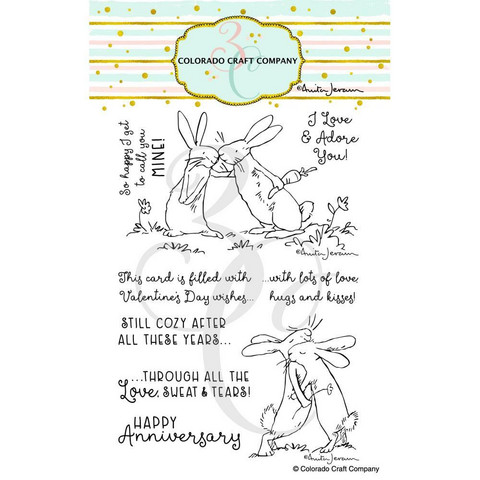 3
C
COLORADO CRAFT COMPANY
©Anita Jeram
So happy I get
to call you
MINE!
I Love
& Adore
You!
©Anita Jeram
This card is filled with
Valentine's Day wishes...
...with lots of love,
hugs and kisses!
STILL COZY AFTER
ALL THESE YEARS...
...THROUGH ALL THE
Love, SWEAT & TEARS!
HAPPY
Anniversary
©Anita Jeram
© Colorado Craft Company